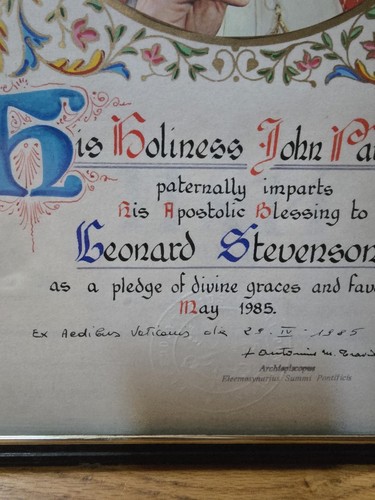 His Holiness John Pa
paternally imparts
His Apostolic Blessing to
Leonard Stevenson
as a pledge of divine graces and fav
May 1985.
Ex Aedibus Vaticanis die 29-IV-1985
+ Antonius M.
Archiepiscopus
Eleemosynarius Summi Pontificis